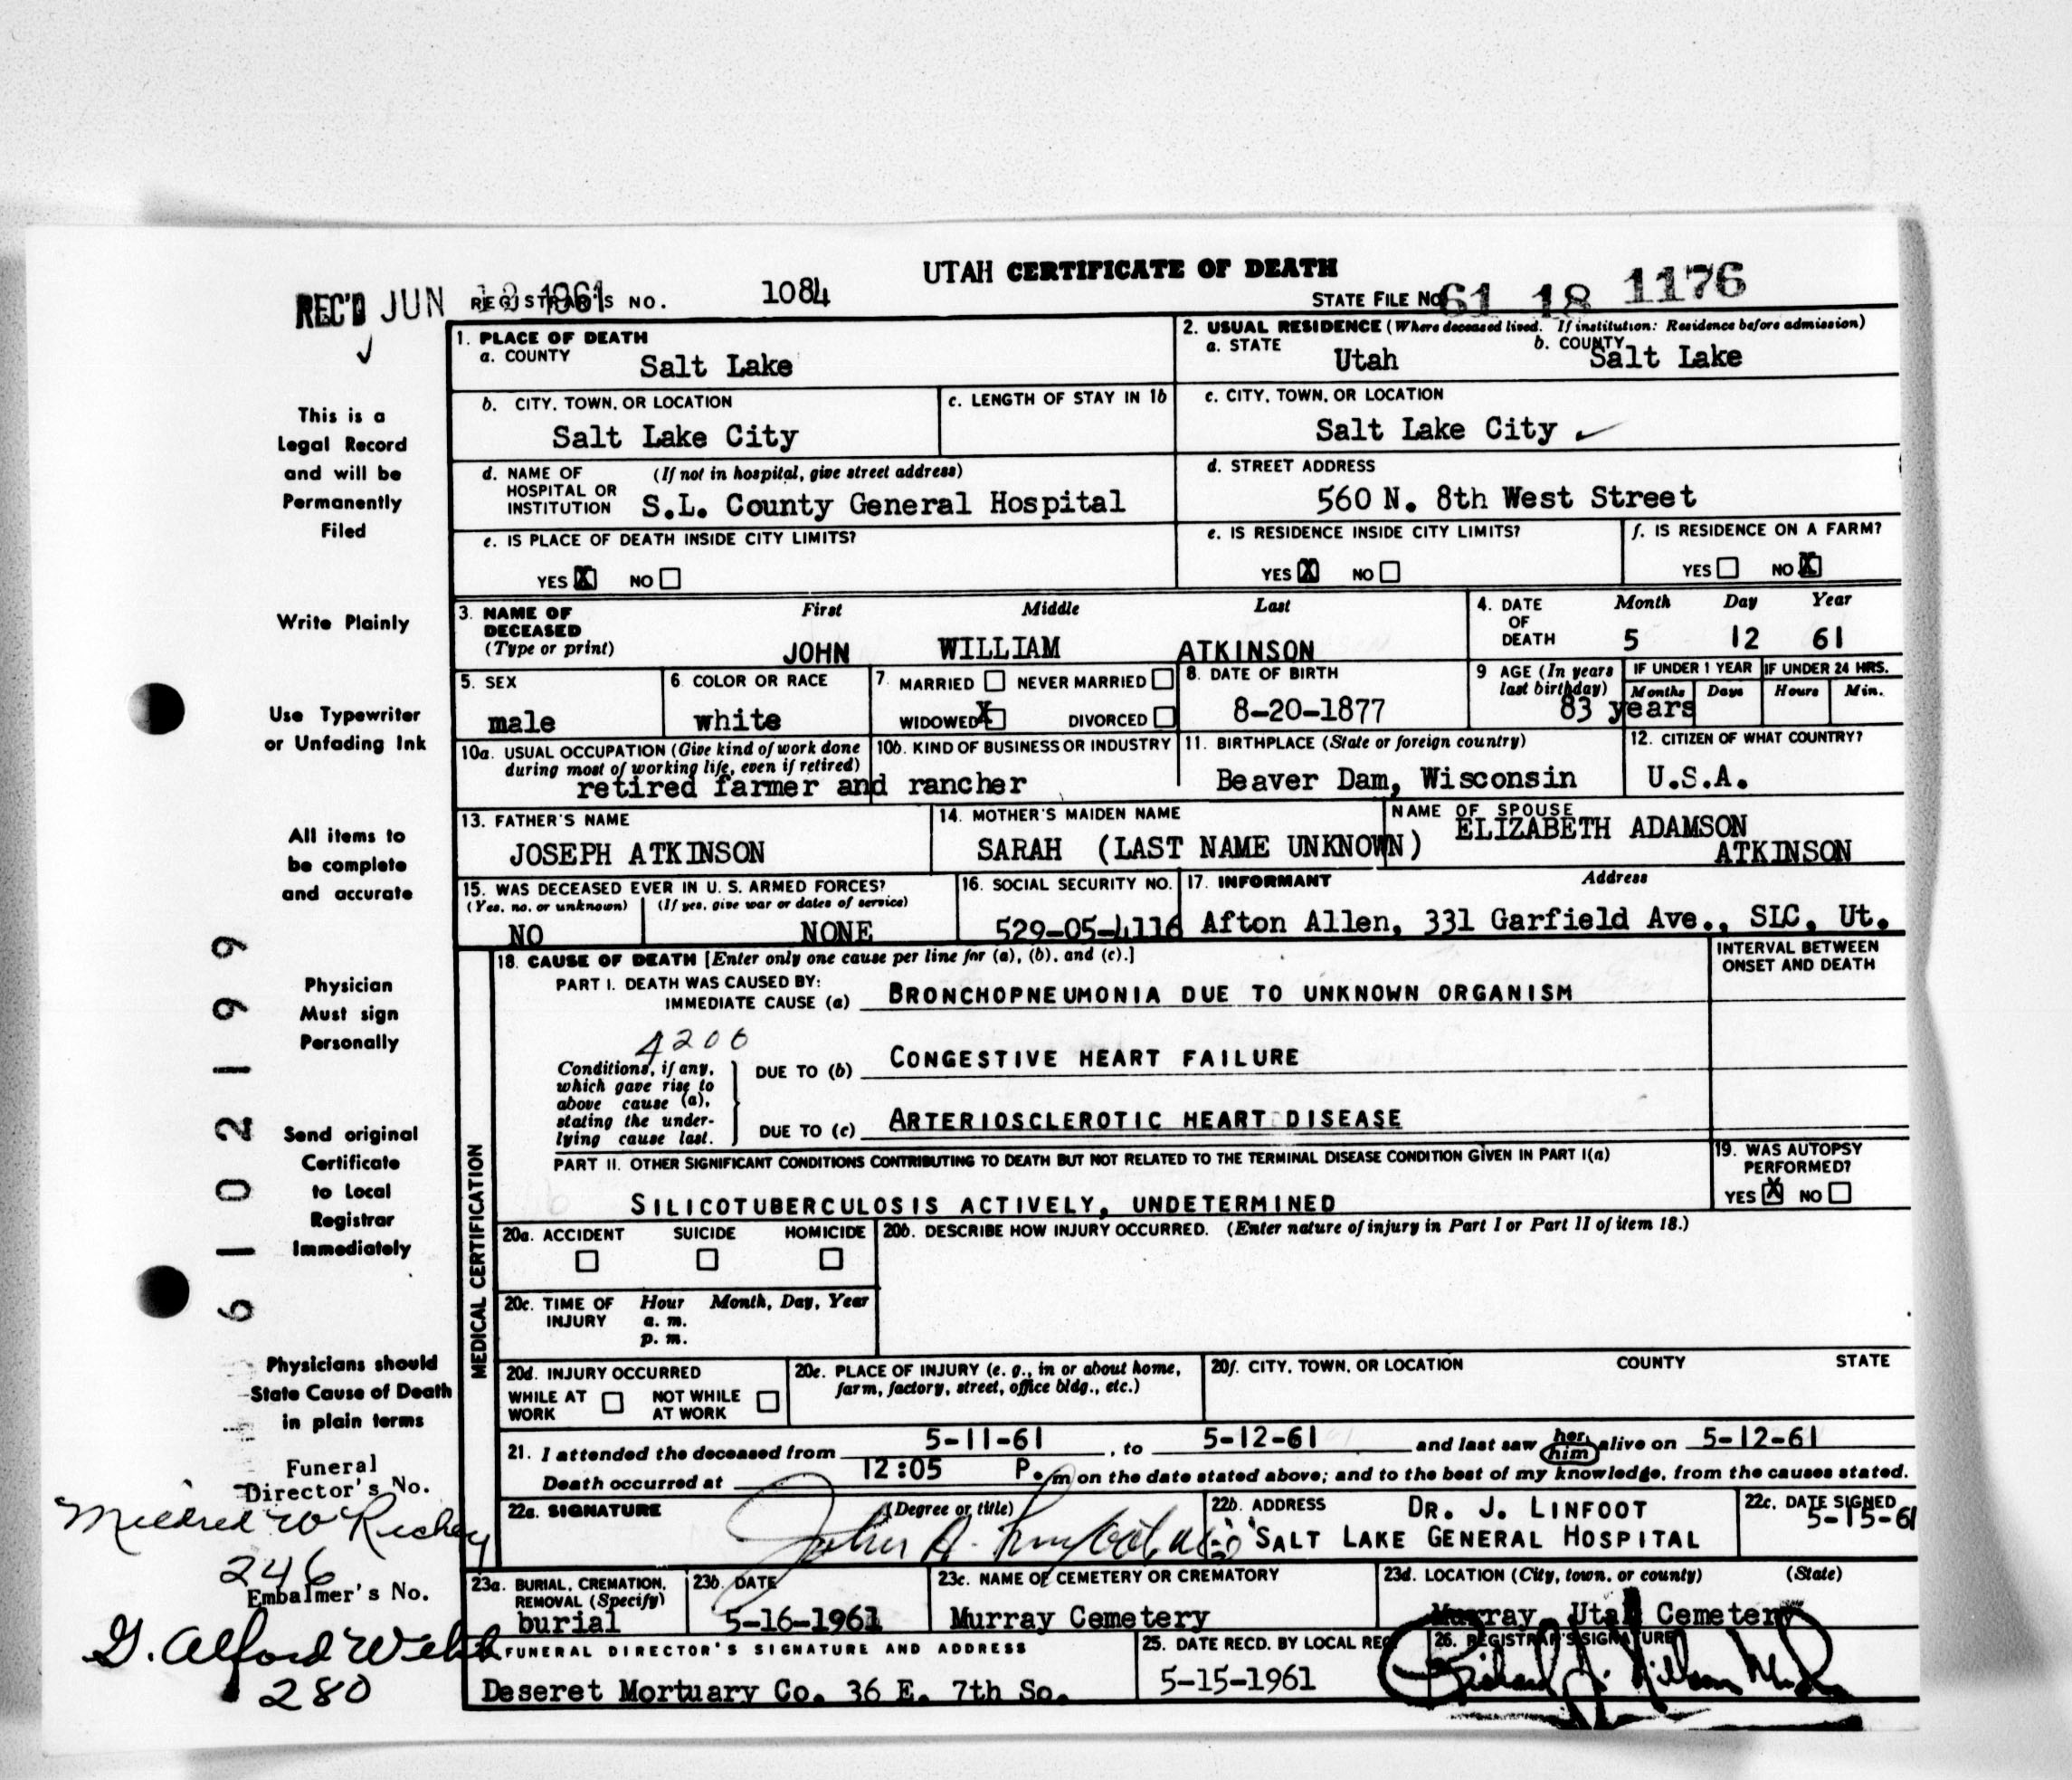 UTAH CERTIFICATE OF DEATH
REC'D JUN 1961 REGISTRAR'S NO. 1084 STATE FILE No. 61 18 1176
1. PLACE OF DEATH
a. COUNTY Salt Lake
2. USUAL RESIDENCE (Where deceased lived. If institution: Residence before admission)
a. STATE Utah b. COUNTY Salt Lake
b. CITY, TOWN, OR LOCATION Salt Lake City
c. LENGTH OF STAY IN 1b
c. CITY, TOWN, OR LOCATION Salt Lake City
d. NAME OF HOSPITAL OR INSTITUTION (If not in hospital, give street address)
S.L. County General Hospital
d. STREET ADDRESS
560 N. 8th West Street
e. IS PLACE OF DEATH INSIDE CITY LIMITS?
YES X NO
e. IS RESIDENCE INSIDE CITY LIMITS?
YES X NO
f. IS RESIDENCE ON A FARM?
YES NO X
3. NAME OF DECEASED (Type or print) First Middle Last
JOHN WILLIAM ATKINSON
4. DATE OF DEATH Month Day Year
5 12 61
5. SEX
male
6. COLOR OR RACE
white
7. MARRIED NEVER MARRIED
WIDOWED X DIVORCED
8. DATE OF BIRTH
8-20-1877
9 AGE (In years last birthday)
83 years
IF UNDER 1 YEAR IF UNDER 24 HRS.
Months Days Hours Min.
10a. USUAL OCCUPATION (Give kind of work done during most of working life, even if retired)
10b. KIND OF BUSINESS OR INDUSTRY
retired farmer and rancher
11. BIRTHPLACE (State or foreign country)
Beaver Dam, Wisconsin
12. CITIZEN OF WHAT COUNTRY?
U.S.A.
13. FATHER'S NAME
JOSEPH ATKINSON
14. MOTHER'S MAIDEN NAME
SARAH (LAST NAME UNKNOWN)
NAME OF SPOUSE
ELIZABETH ADAMSON
ATKINSON
15. WAS DECEASED EVER IN U. S. ARMED FORCES?
(Yes, no, or unknown) (If yes, give war or dates of service)
NO NONE
16. SOCIAL SECURITY NO.
529-05-4116
17. INFORMANT Address
Afton Allen, 331 Garfield Ave., SLC, Ut.
MEDICAL CERTIFICATION
18. CAUSE OF DEATH [Enter only one cause per line for (a), (b), and (c).]
INTERVAL BETWEEN ONSET AND DEATH
PART I. DEATH WAS CAUSED BY:
IMMEDIATE CAUSE (a) BRONCHOPNEUMONIA DUE TO UNKNOWN ORGANISM
4200
Conditions, if any, which gave rise to above cause (a), stating the underlying cause last.
DUE TO (b) CONGESTIVE HEART FAILURE
DUE TO (c) ARTERIOSCLEROTIC HEART DISEASE
PART II. OTHER SIGNIFICANT CONDITIONS CONTRIBUTING TO DEATH BUT NOT RELATED TO THE TERMINAL DISEASE CONDITION GIVEN IN PART I(a)
SILICOTUBERCULOSIS ACTIVELY, UNDETERMINED
19. WAS AUTOPSY PERFORMED?
YES X NO
20a. ACCIDENT SUICIDE HOMICIDE
20b. DESCRIBE HOW INJURY OCCURRED. (Enter nature of injury in Part I or Part II of item 18.)
20c. TIME OF INJURY Hour Month, Day, Year
a. m.
p. m.
20d. INJURY OCCURRED
WHILE AT WORK NOT WHILE AT WORK
20e. PLACE OF INJURY (e. g., in or about home, farm, factory, street, office bldg., etc.)
20f. CITY, TOWN, OR LOCATION COUNTY STATE
21. I attended the deceased from 5-11-61, to 5-12-61 and last saw her him alive on 5-12-61
Death occurred at 12:05 P. m on the date stated above; and to the best of my knowledge, from the causes stated.
22a. SIGNATURE (Degree or title)
John A. Linfoot
22b. ADDRESS
DR. J. LINFOOT
SALT LAKE GENERAL HOSPITAL
22c. DATE SIGNED
5-15-61
23a. BURIAL, CREMATION, REMOVAL (Specify)
burial
23b. DATE
5-16-1961
23c. NAME OF CEMETERY OR CREMATORY
Murray Cemetery
23d. LOCATION (City, town, or county) (State)
Murray, Utah Cemetery
FUNERAL DIRECTOR'S SIGNATURE AND ADDRESS
Deseret Mortuary Co. 36 E. 7th So.
25. DATE RECD. BY LOCAL REG.
5-15-1961
26. REGISTRAR'S SIGNATURE
This is a
Legal Record
and will be
Permanently
Filed
Write Plainly
Use Typewriter
or Unfading Ink
All items to
be complete
and accurate
Physician
Must sign
Personally
Send original
Certificate
to Local
Registrar
Immediately
Physicians should
State Cause of Death
in plain terms
Funeral
Director's No.
Mildred W Richey
246
Embalmer's No.
G. Alford Webb
280
6102199